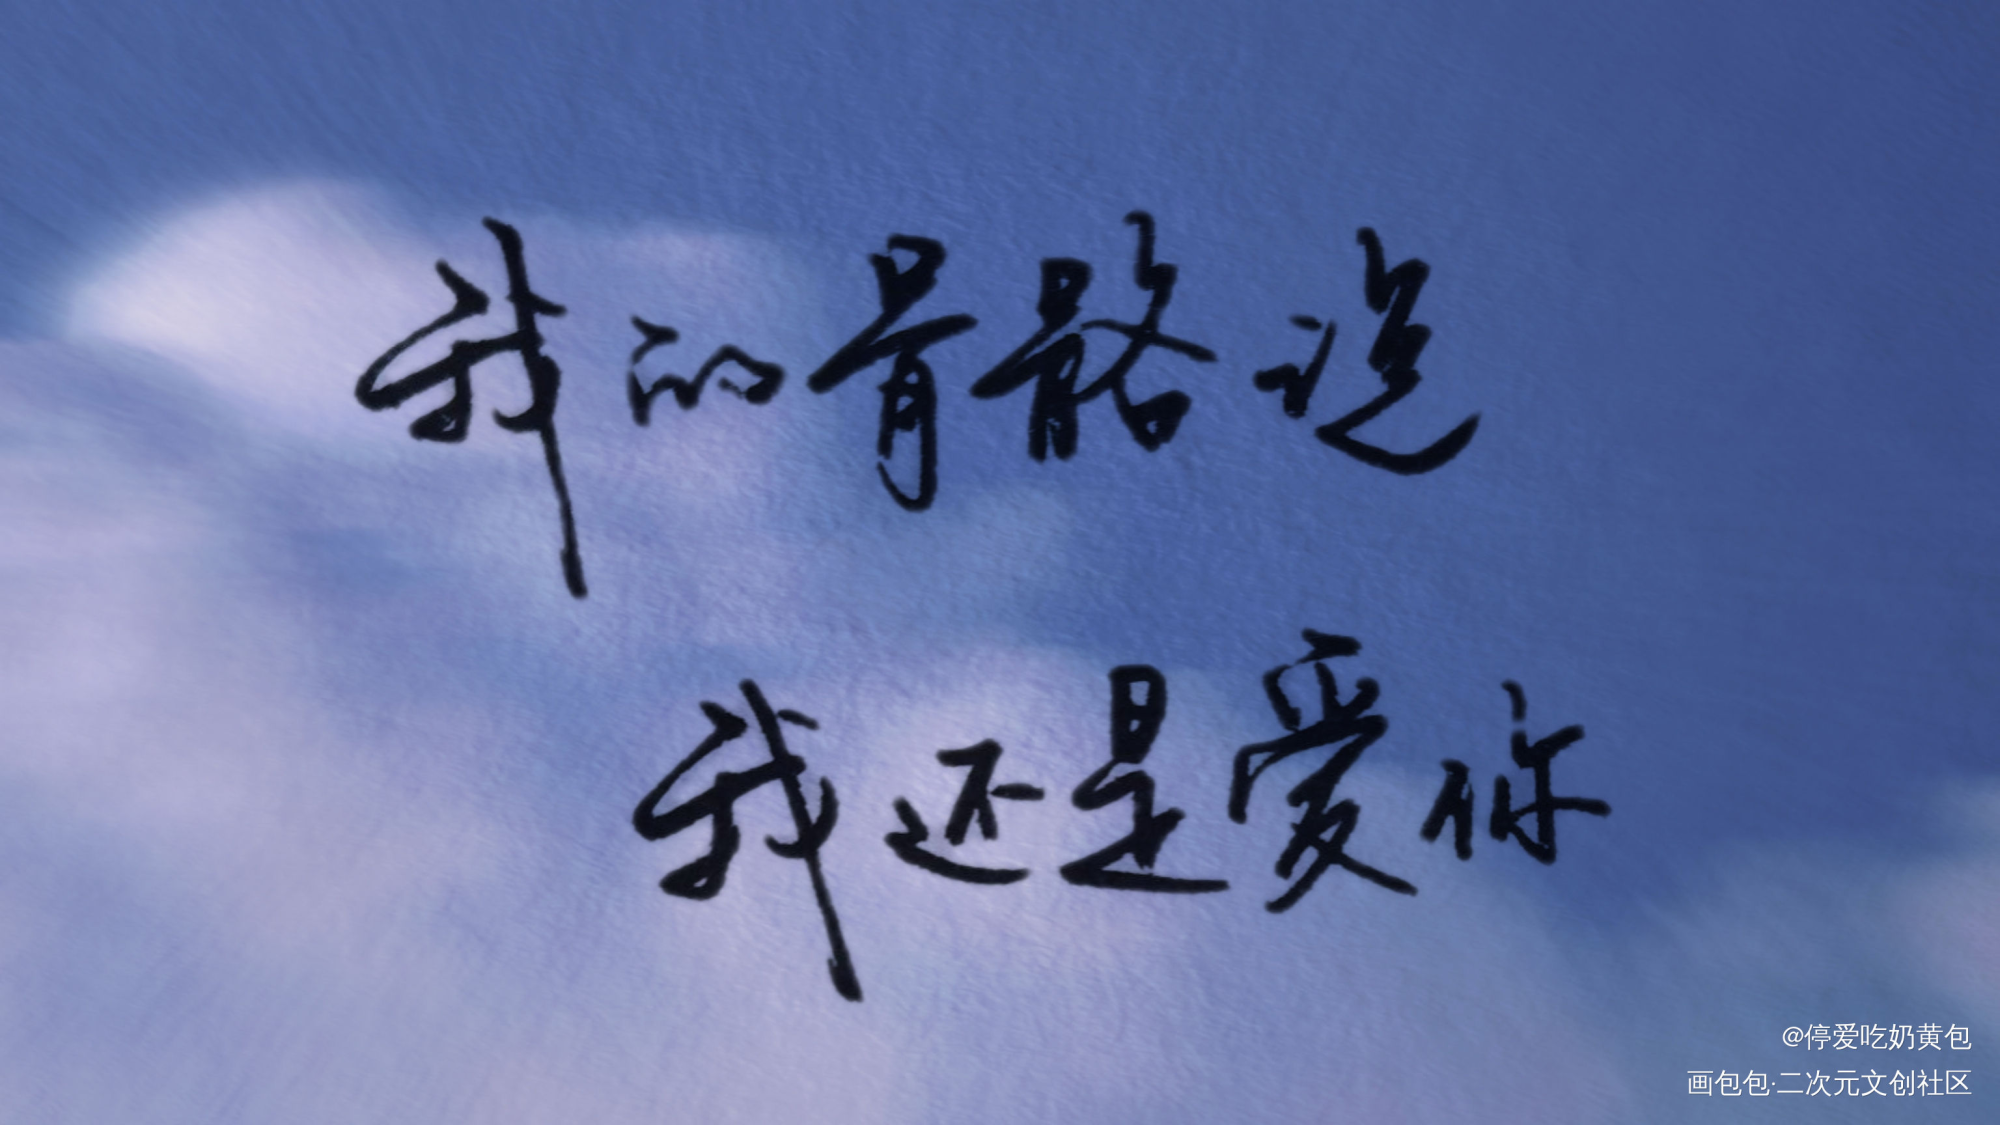 我的骨骼说
我还是爱你
@停爱吃奶黄包
画包包·二次元文创社区